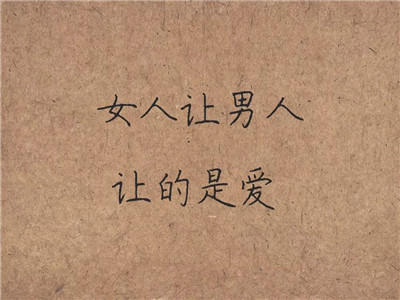 女人让男人
让的是爱